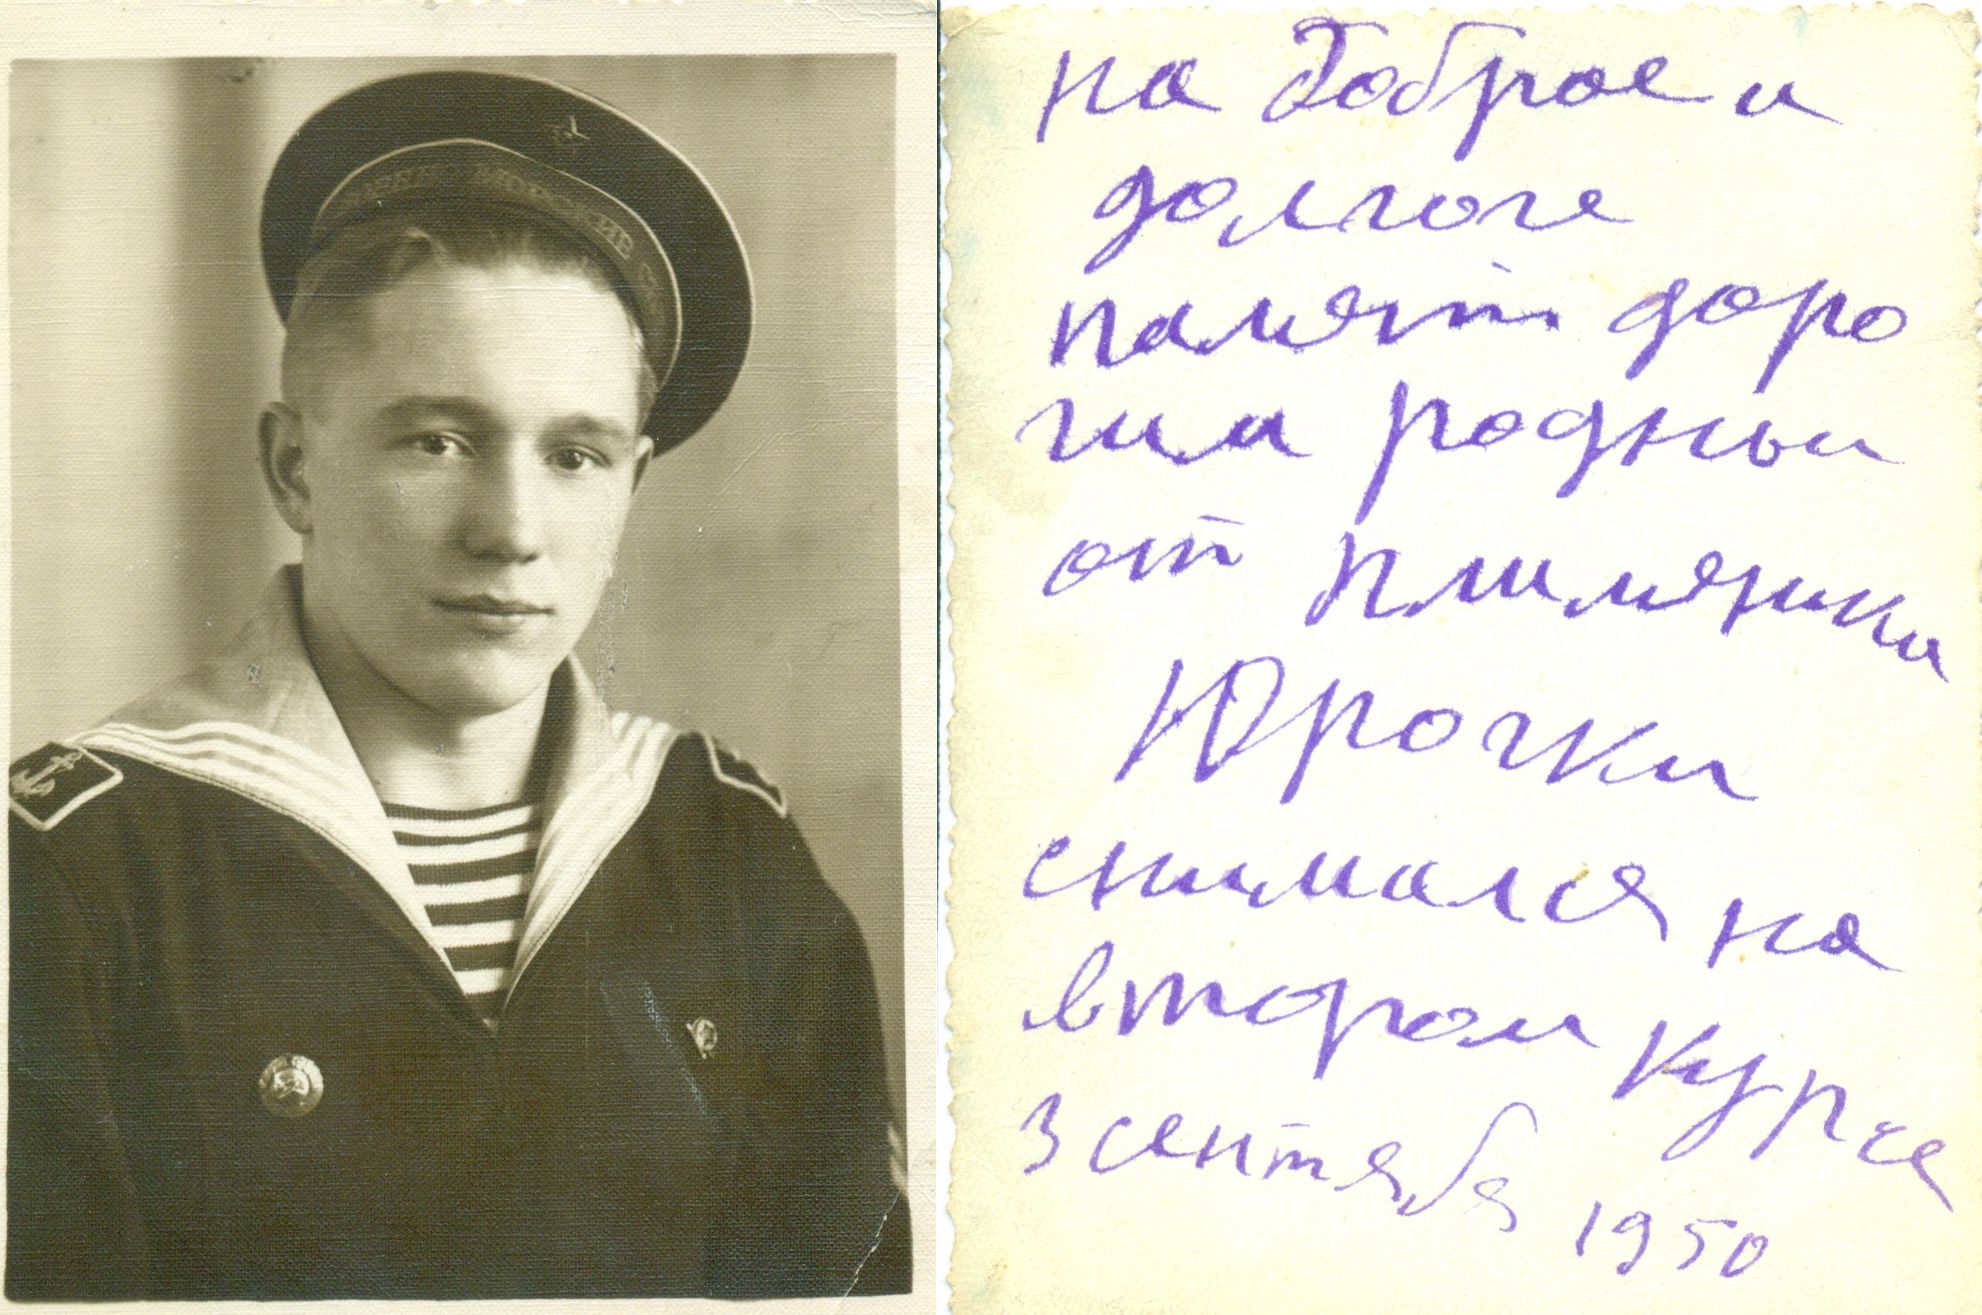 МОРСКИЕ
на доброе и
долгое
память доро
гим родным
от племяники
Юрочки
снимался на
втором курсе
3 сентября 1950